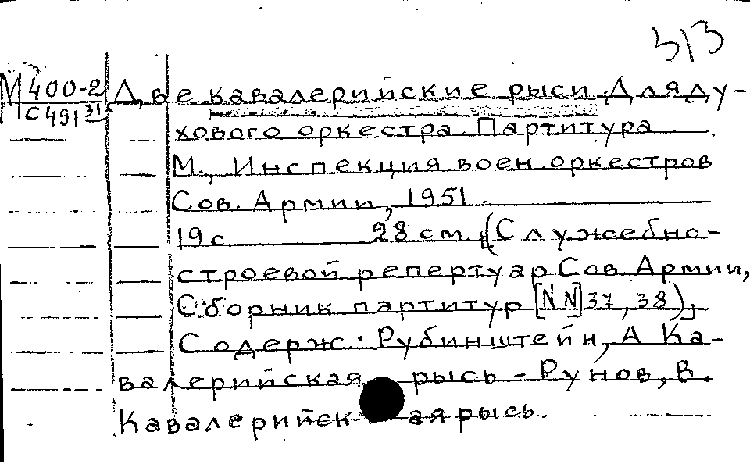 313
М400-2 Две кавалерийские рыси. Для ду-
С491 31 хового оркестра. Партитура
М., Инспекция воен. оркестров
Сов. Армии, 1951
19с 28 см. (Служебно-
строевой репертуар Сов. Армии,
Сборник партитур [NN] 37, 38),
Содерж.: Рубинштейн, А Ка-
валерийская рысь - Рунов, В.
Кавалерийская рысь.